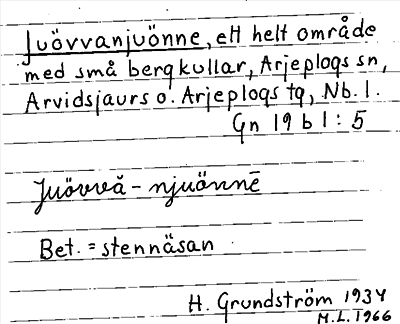 Juövvanjuönne, ett helt område
med små bergkullar, Arjeplogs sn,
Arvidsjaurs o. Arjeplogs tg, Nb. l.
Gn 19 b l : 5
Juövvă - njuönnē
Bet. = stennäsan
H. Grundström 1934
M.L. 1966